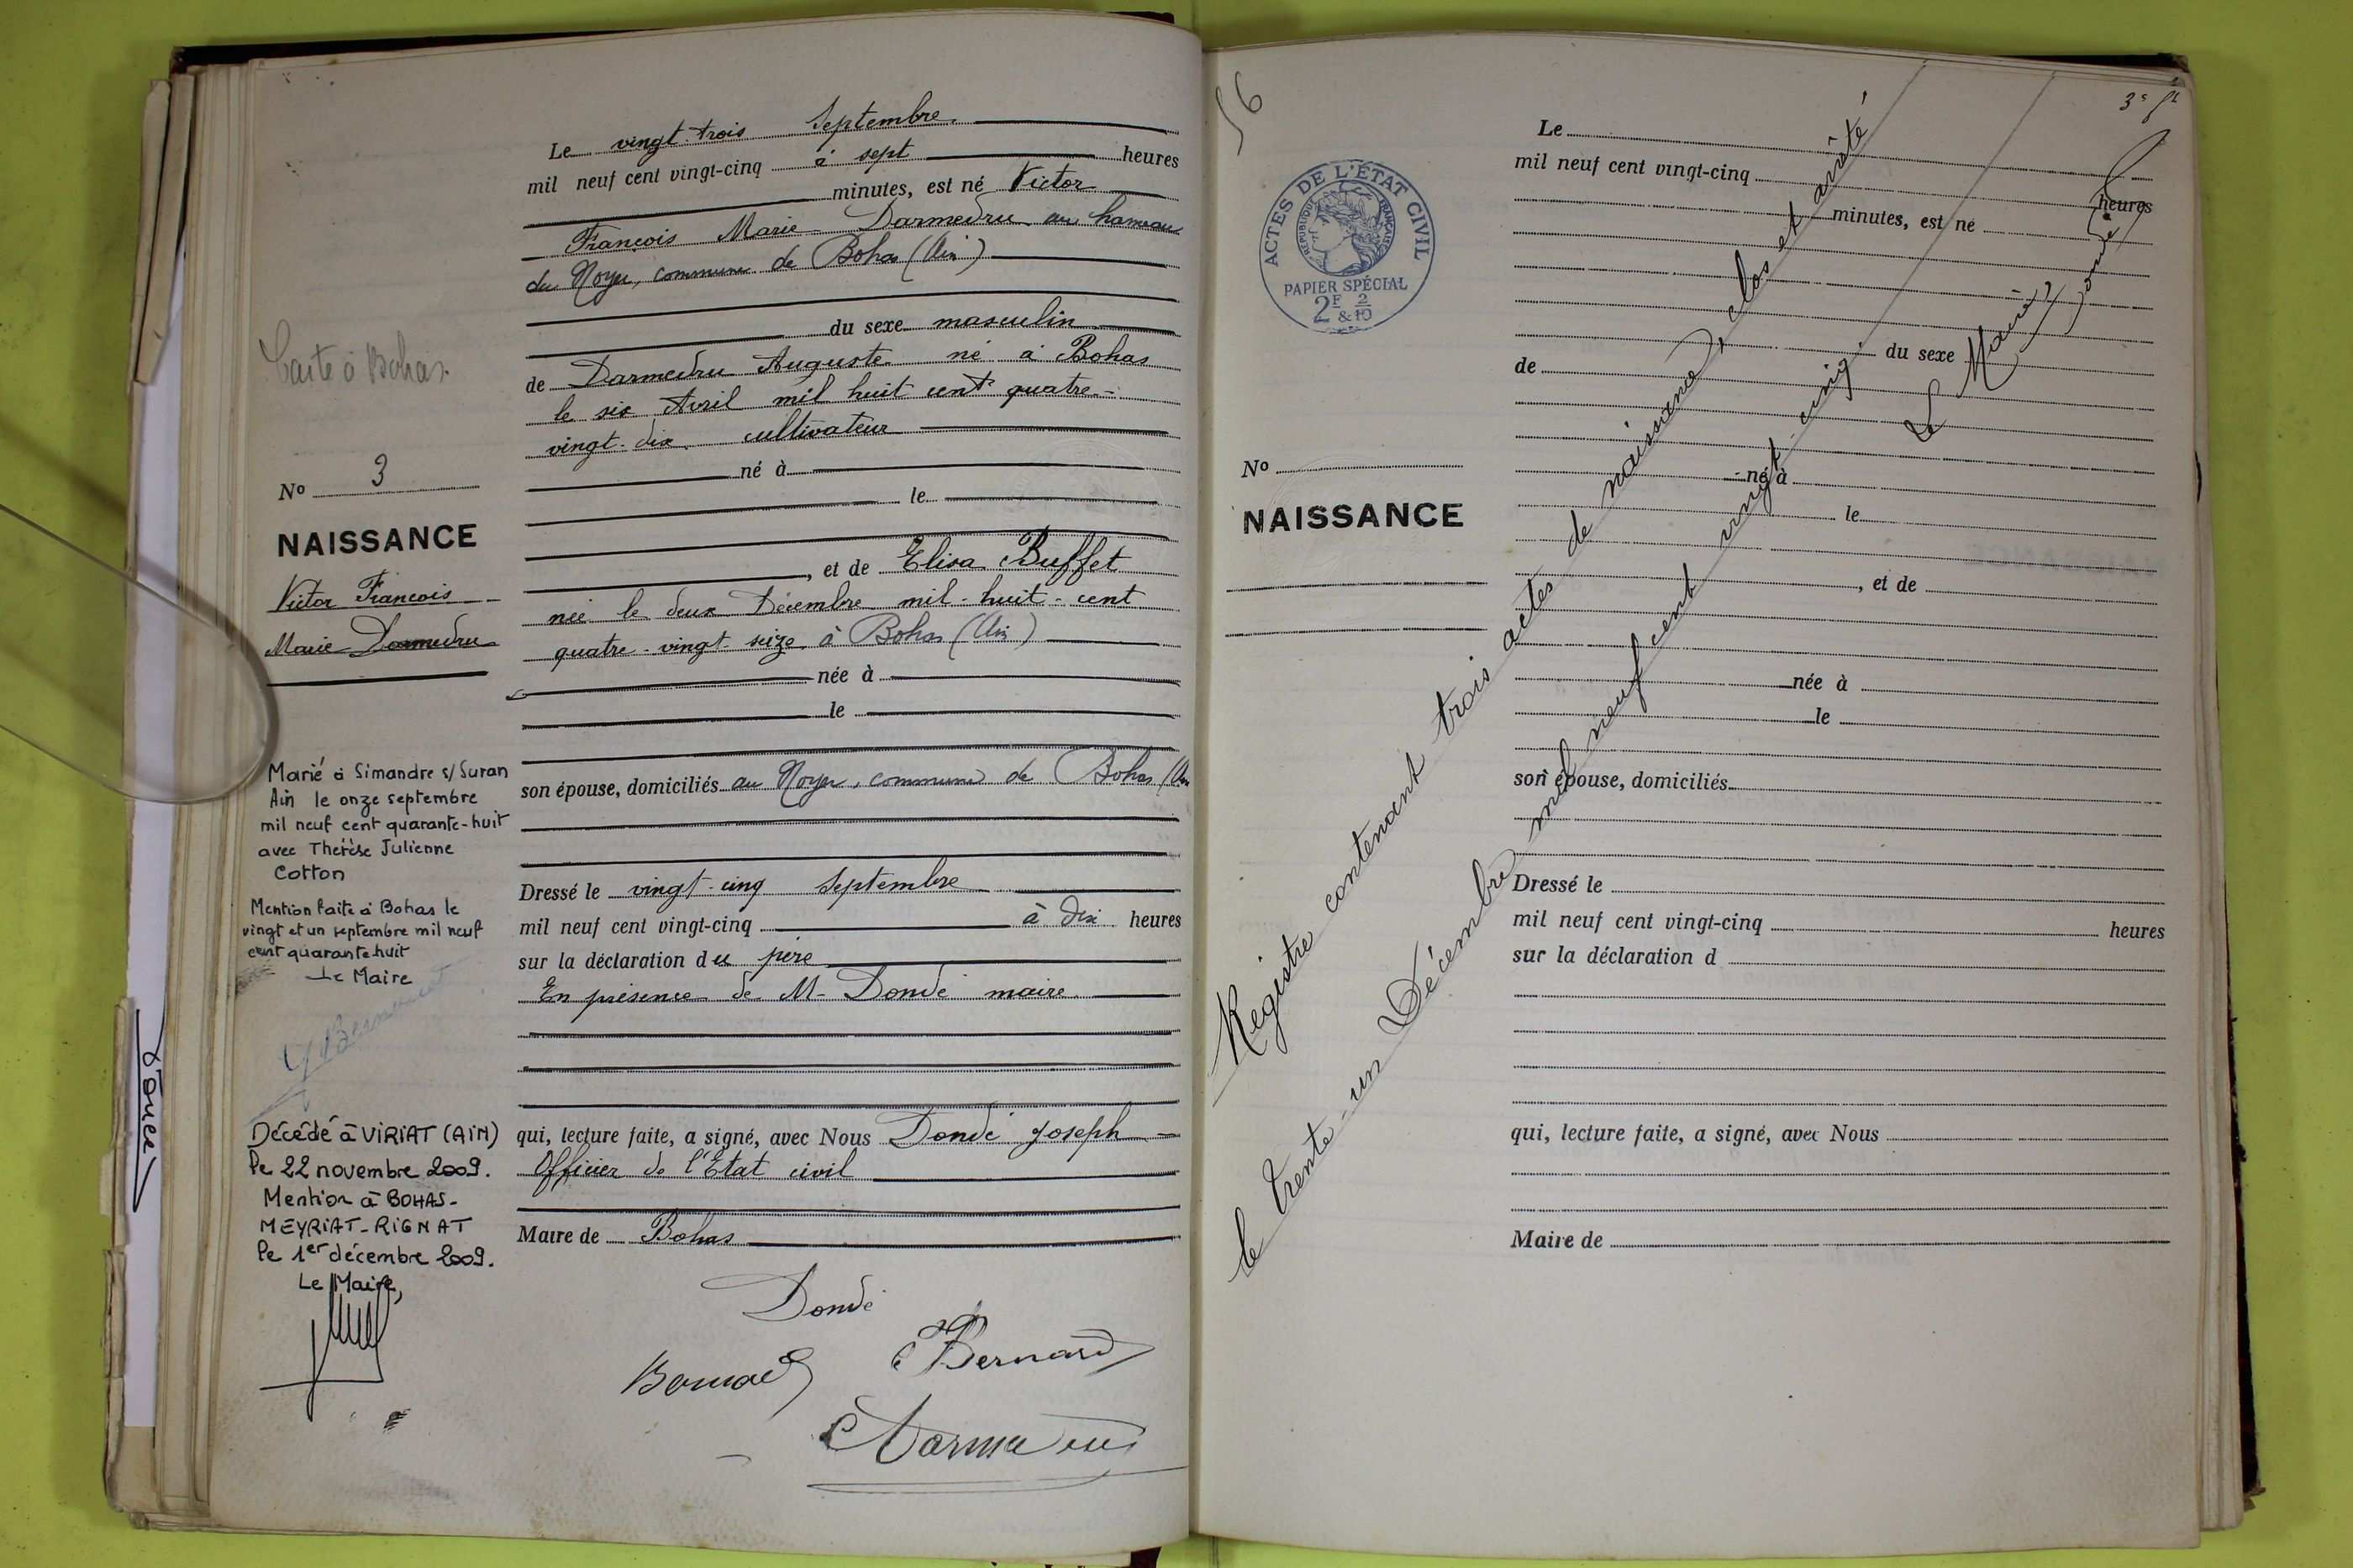 Le vingt-trois Septembre
mil neuf cent vingt-cinq à sept heures
minutes, est né Victor
François Marie Darmedru au hameau
du Noyer, commune de Bohas (Ain)
du sexe masculin
de Darmedru Auguste né à Bohas
le six Avril mil huit cent quatre-
vingt-dix cultivateur
né à
le
, et de Elisa Buffet
née le deux Décembre mil-huit-cent
quatre-vingt-seize à Bohas (Ain)
née à
le
son épouse, domiciliés au Noyer, commune de Bohas (Ain
Dressé le vingt-cinq Septembre
mil neuf cent vingt-cinq à dix heures
sur la déclaration du père
En présence de M- Dondé maire
qui, lecture faite, a signé, avec Nous Dondé Joseph
Officier de l'Etat civil
Maire de Bohas
Dondé
Bernard
Carte à Bohas
No 3
NAISSANCE
Victor François
Marie Darmedru
Marié à Simandre s/Suran
Ain le onze septembre
mil neuf cent quarante-huit
avec Thérèse Julienne
Cotton
Mention faite à Bohas le
vingt et un septembre mil neuf
cent quarante huit
Le Maire
Décédé à VIRIAT (AIN)
le 22 novembre 2009.
Mention à BOHAS-
MEYRIAT-RIGNAT
le 1er décembre 2009.
Le Maire,
56
ACTES DE L'ÉTAT CIVIL
RÉPUBLIQUE FRANÇAISE
PAPIER SPÉCIAL
2F & 2/10
No
NAISSANCE
Le
mil neuf cent vingt-cinq
heures
minutes, est né
du sexe
de
né à
le
, et de
née à
le
son épouse, domiciliés
Dressé le
mil neuf cent vingt-cinq heures
sur la déclaration d
qui, lecture faite, a signé, avec Nous
Maire de
Registre contenant trois actes de naissance, clos et arrêté
le trente-un Décembre mil neuf cent vingt-cinq
Le Maire
Dondé